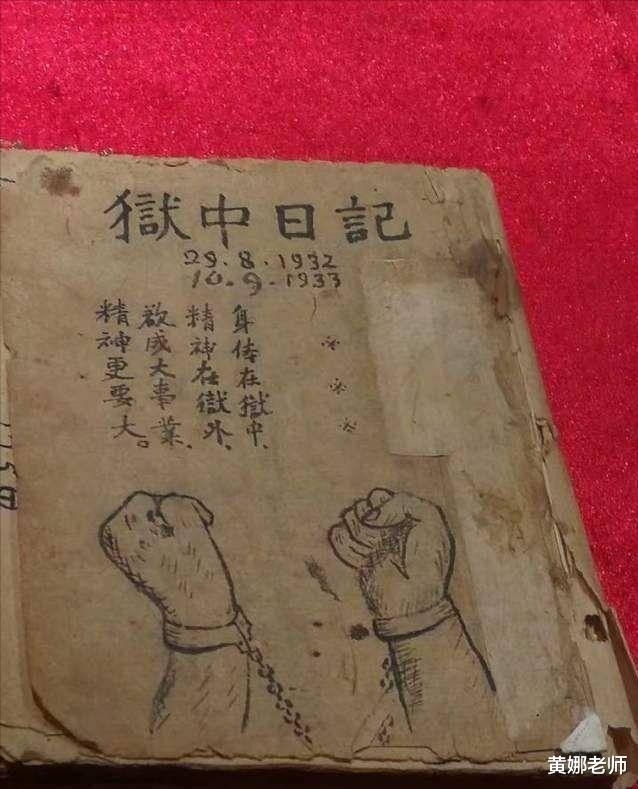 獄中日記
29.8.1932
10.9.1933
身体在獄中.
精神在獄外.
欲成大事業.
精神更要大。
黄娜老师